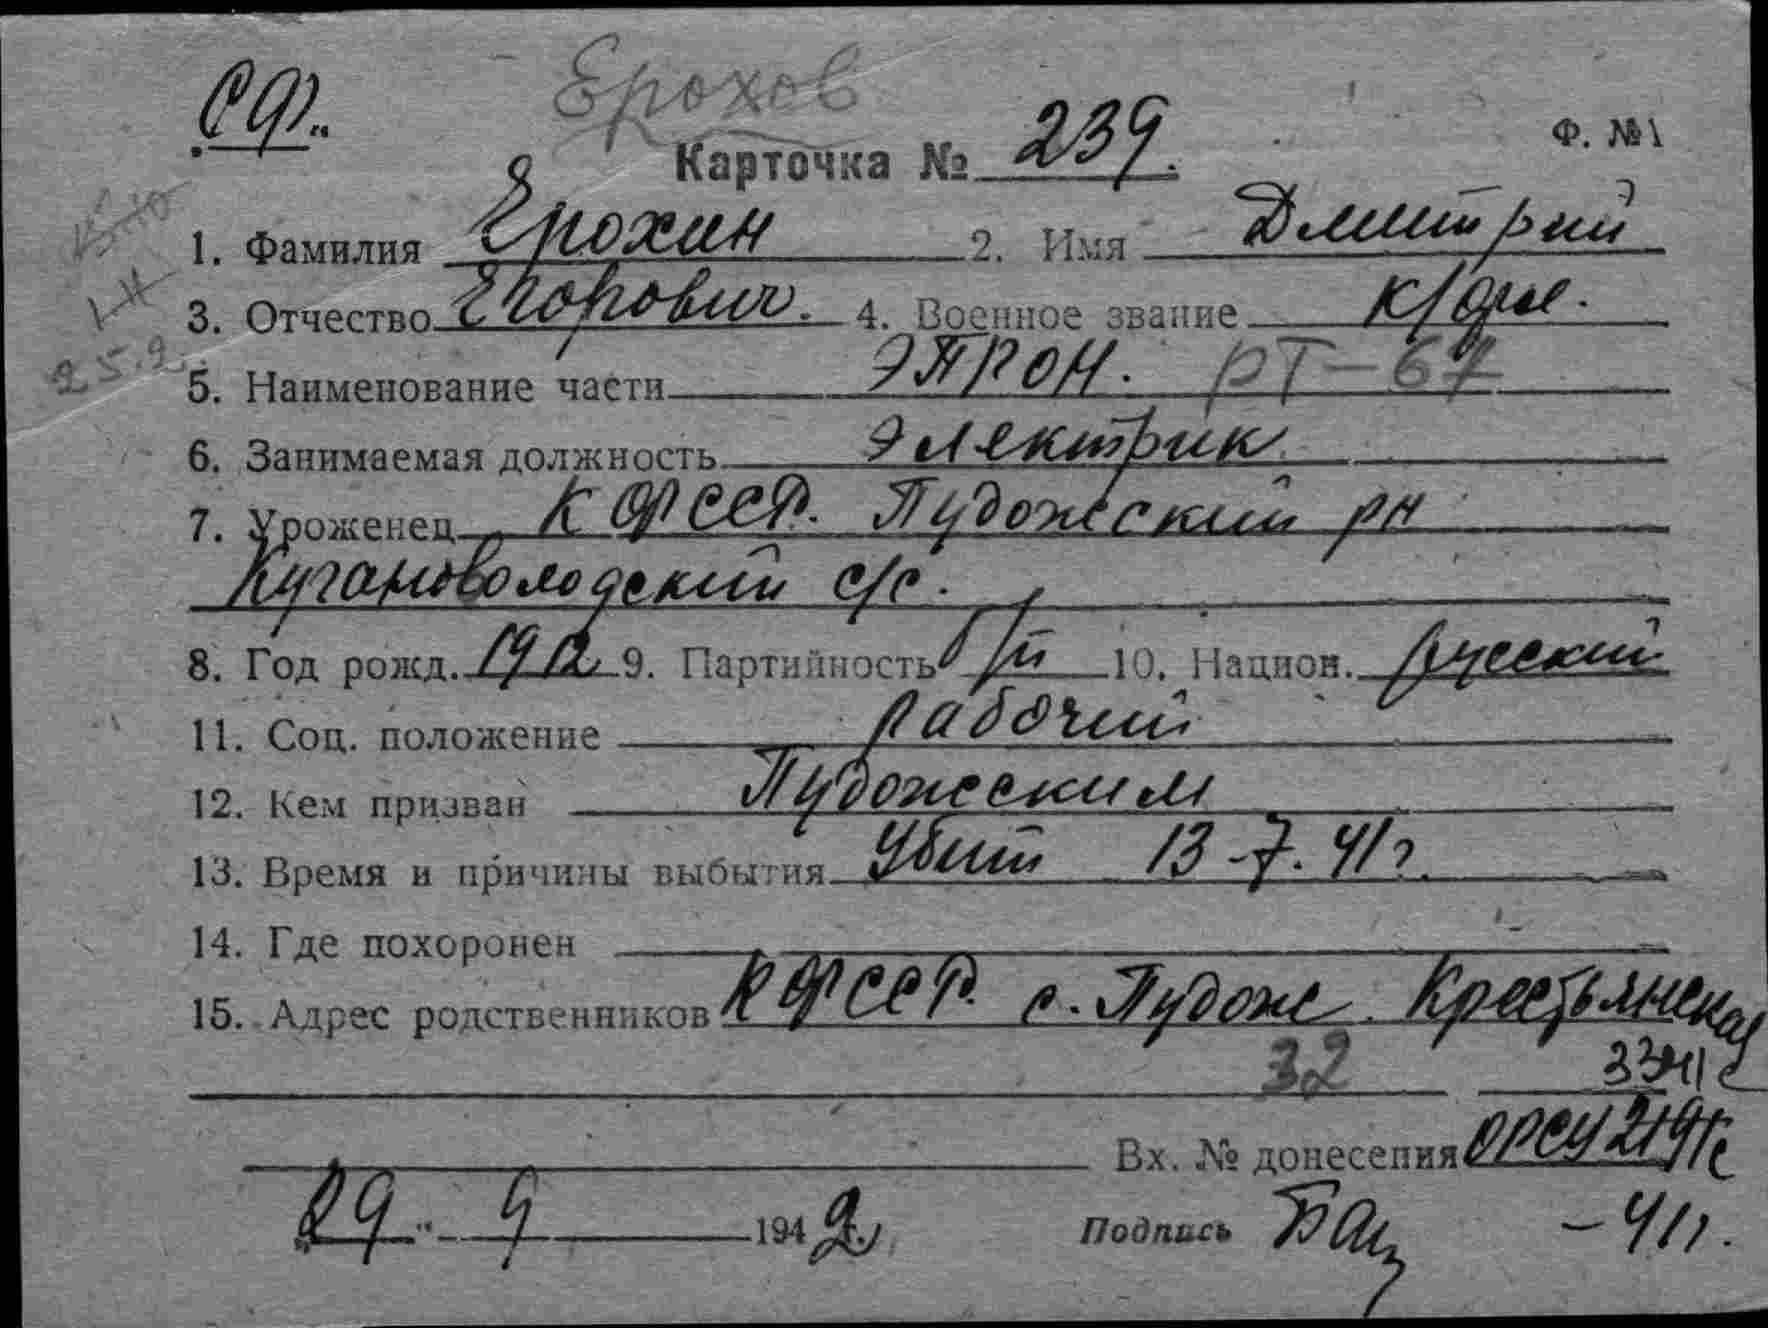 СФ.
Ерохов
Ф. №1
Карточка № 239.
1. Фамилия Ерохин 2. Имя Дмитрий
3. Отчество Егорович. 4. Военное звание к/фл.
25.2.
5. Наименование части ЭПРОН. РТ-67
6. Занимаемая должность электрик
7. Уроженец КФССР. Пудожский рн
Куганаволодский с/с.
8. Год рожд. 1912 9. Партийность б/п 10. Национ. русский
11. Соц. положение рабочий
12. Кем призван Пудожским
13. Время и причины выбытия Убит 13-7.41г.
14. Где похоронен
15. Адрес родственников КФССР. г. Пудож. Крестьянская
32
Вх. № донесения ОРСУ
29 " 9 1942 Подпись -41г.